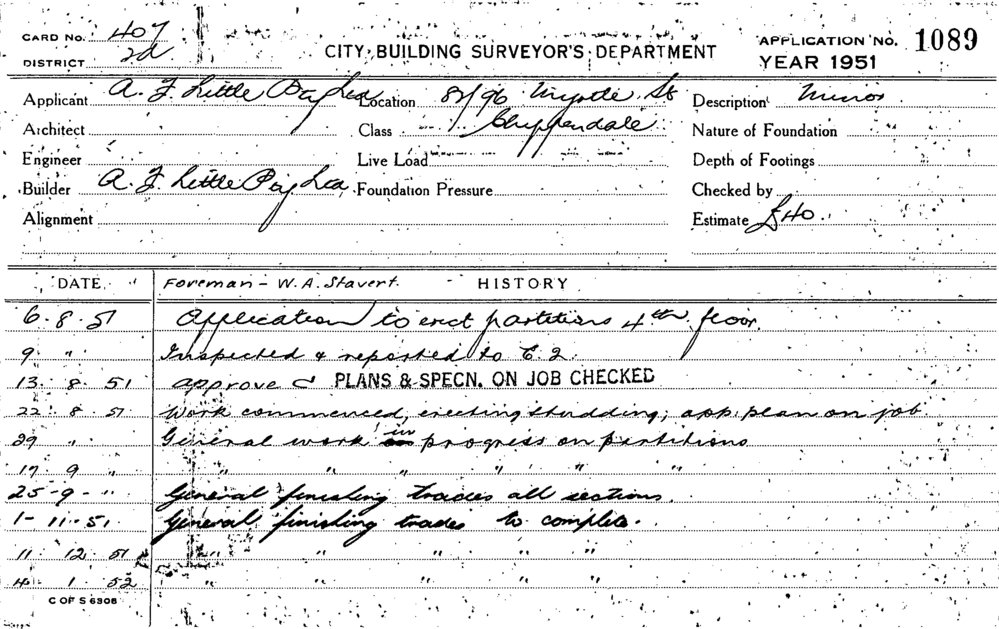 CARD No. 407
DISTRICT 2d
CITY BUILDING SURVEYOR'S DEPARTMENT
APPLICATION No. 1089
YEAR 1951
Applicant A. F. Little Pty Ltd
Location 82/96 Myrtle St
Chippendale
Description Minor
Architect
Class
Nature of Foundation
Engineer
Live Load
Depth of Footings
Builder A. F. Little Pty Ltd
Foundation Pressure
Checked by
Alignment
Estimate £40
DATE
Foreman - W. A. Stavert.
HISTORY
6. 8. 51 Application to erect partitions 4th floor.
9 " Inspected & reported to
13. 8. 51 approve PLANS & SPECN. ON JOB CHECKED
22. 8. 51 Work commenced, erecting studding; app. plan on job
29 " General work in progress on partitions
17 9 " " " " " " "
25-9-" General finishing trades all sections.
1-11-51 General finishing trades to complete.
11 12 51 " " " " "
4 1 52 " " " " "
C OF S 6306